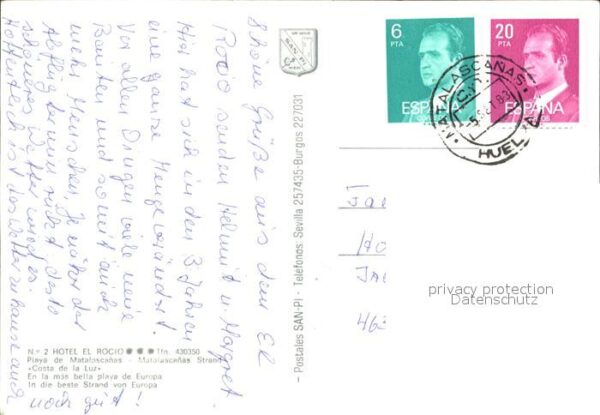 Schöne Grüße aus dem El
Rocio senden Helmut u. Margret
Hier hat sich in den 3 Jahren
eine ganze Menge verändert.
Vor allen Dingen viele neue
Bauten und somit auch
mehr Menschen. Je näher der
Abflug kommt rückt desto
schöneres Wetter wird es.
Hoffentlich ist das Wetter zu Hause auch
noch gut!
N.º 2 HOTEL EL ROCIO Tfn. 430350
Playa de Matalascañas - Matalascañas Strand
«Costa de la Luz»
En la más bella playa de Europa
In die beste Strand von Europa
- Postales SAN-PI - Teléfonos Sevilla 257435-Burgos 227031
SAN-PI
6 PTA
ESPAÑA
20 PTA
ESPAÑA
MATALASCAÑAS
HUELVA
83
privacy protection
Datenschutz